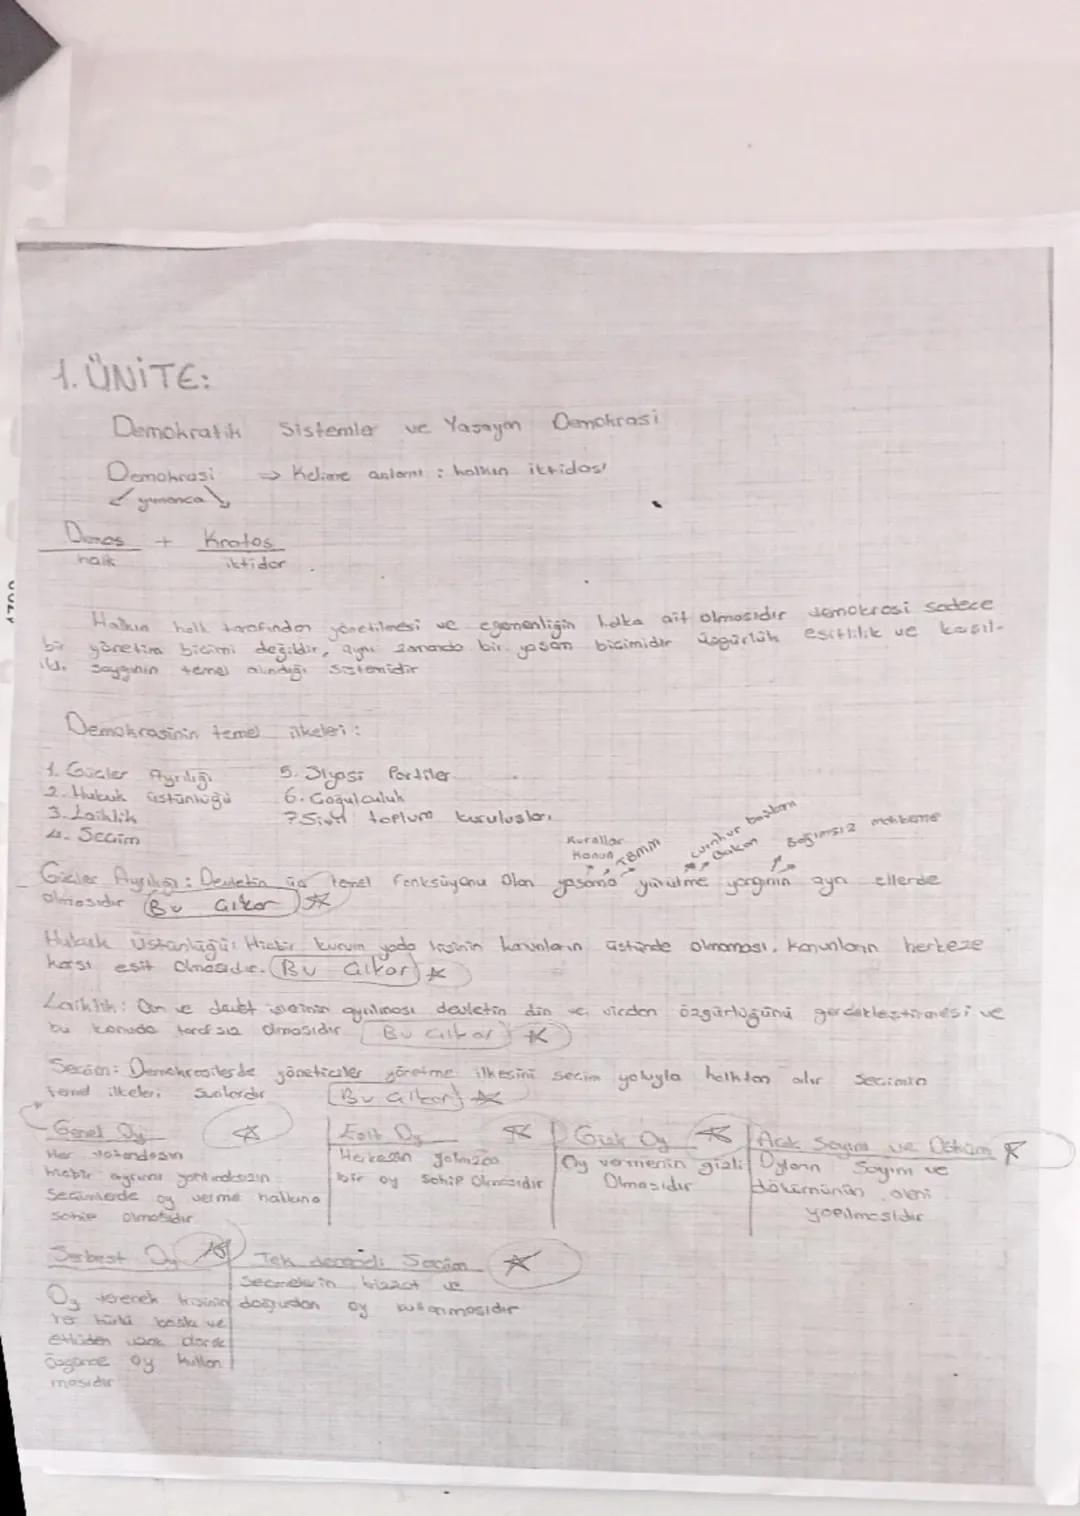 1. ÜNİTE:
Demokratik Sistemler ve Yaşayan Demokrasi
Demokrasi ⇒ Kelime anlamı : halkın iktidarı
yunanca
Demos + Kratos
halk iktidar
Halkın halk tarafından yönetilmesi ve egemenliğin halka ait olmasıdır demokrasi sadece
bir yönetim biçimi değildir, aynı zamanda bir yaşam biçimidir özgürlük eşitlilik ve karşıl-
ıklı saygının temel alındığı sistemidir
Demokrasinin temel ilkeleri :
1. Güçler Ayrılığı 5. Siyasi Partiler
2. Hukuk üstünlüğü 6. Çoğulculuk
3. Laiklik 7. Sivil toplum kuruluşları
4. Seçim
Kurallar Kanun TBMM cumhur başkanı Bakan Bağımsız mahkeme
Güçler Ayrılığı : Devletin üç temel fonksiyonu olan yasama yürütme yargının ayrı ellerde
olmasıdır (Bu Çıkar) ☆
Hukuk Üstünlüğü: Hiçbir kurum yada kişinin kanunların üstünde olmaması. Kanunların herkeze
karşı eşit olmasıdır. (Bu Çıkar) ☆
Laiklik: Din ve devlet işlerinin ayrılması devletin din ve vicdan özgürlüğünü gerçekleştirmesi ve
bu konuda tarafsız olmasıdır (Bu Çıkar) ☆
Seçim: Demokrasilerde yöneticiler yönetme ilkesini seçim yoluyla halktan alır Seçimin
temel ilkeleri şunlardır (Bu Çıkar) ☆
Genel Oy ☆
Her vatandaşın
hiçbir ayrımı yapılmaksızın
Seçimlerde oy verme hakkına
sahip olmasıdır
Eşit Oy ☆
Herkesin yalnızca
bir oy sahip olmasıdır
Gizli Oy ☆
Oy vermenin gizli
Olmasıdır
Açık Sayım ve Döküm ☆
Oyların Sayım ve
dökümünün aleni
yapılmasıdır
Serbest Oy ☆
Oy verecek kişinin
her türlü baskı ve
etkiden uzak olarak
özgürce oy kullan
masıdır
Tek dereceli Seçim ☆
Seçmelerin bizzat ve
doğrudan oy kullanmasıdır